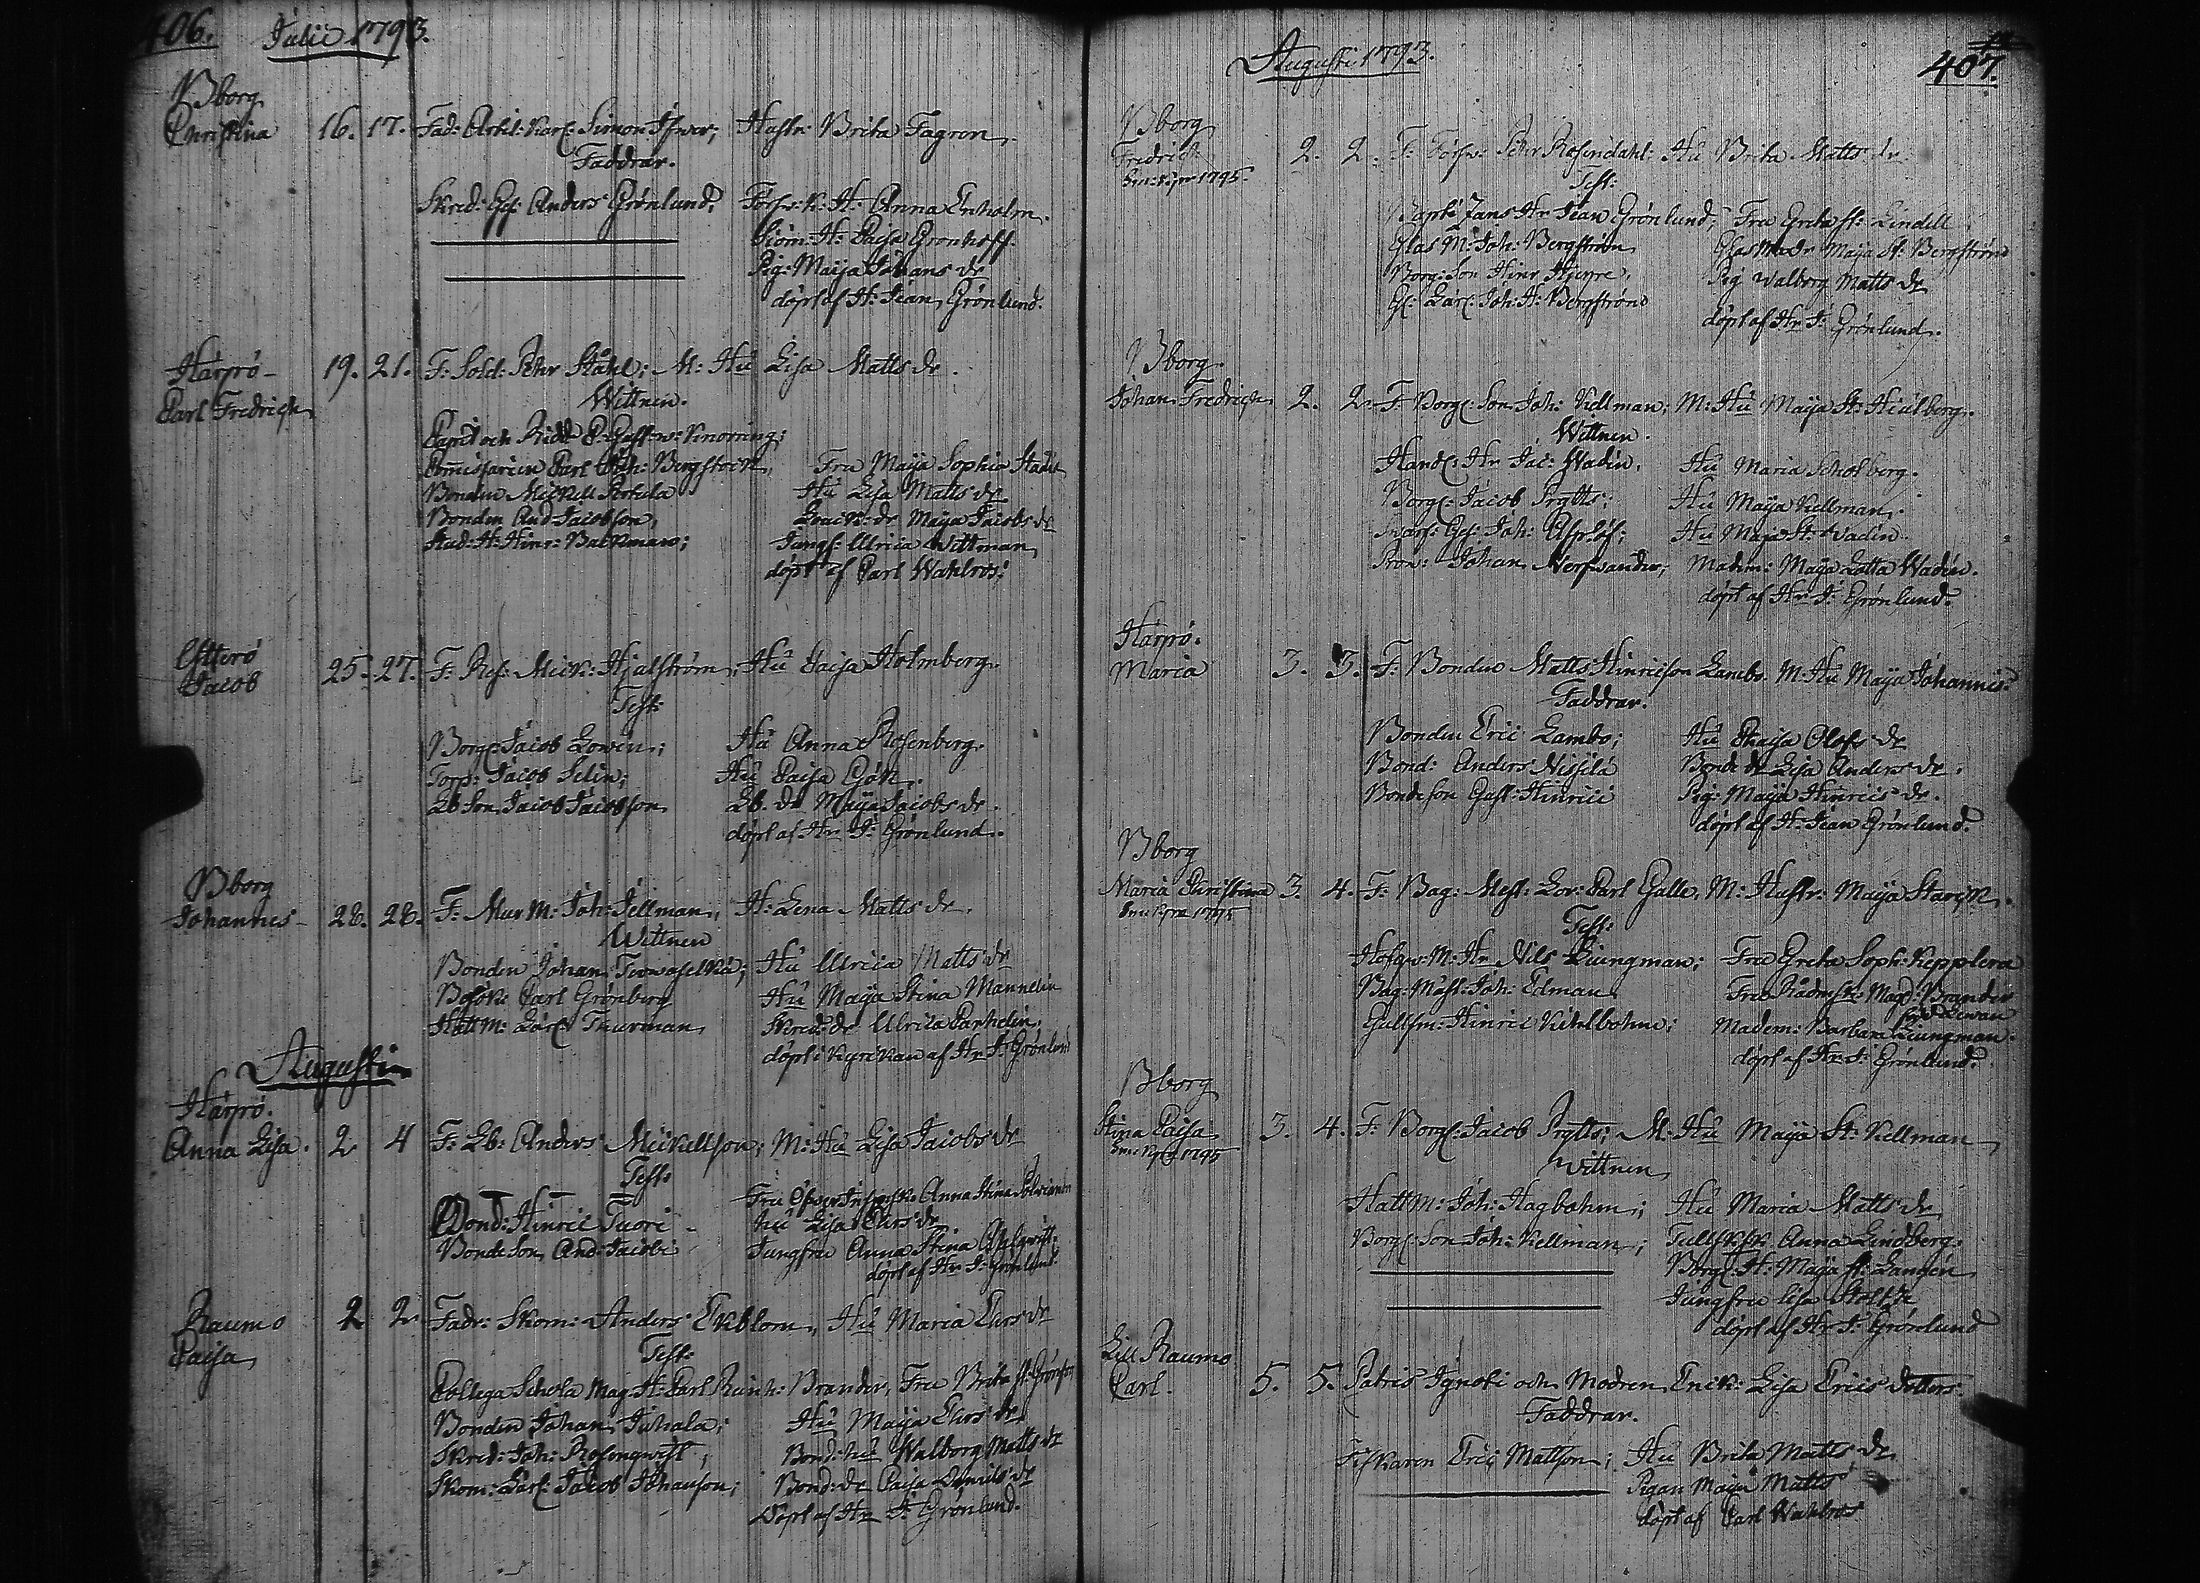 406. Julii 1793.
Bborg
Christina 16. 17. Fad: Arkl: Karl: Simon Hustr: Brita Fagron
Faddrar.
Skred: Ges: Anders Grönlund, Förs: K: H: Anna Enholm.
Siöm: H: Caisa Gronhoff.
Pig: Maija Johans dr
döpt af H: Jean Grönlund.
Harjrö - 19. 21. F: Sold: Pehr Ståhl: M: Hu Lisa Matts dr.
Carl Fredrich Wittnen.
Capit och Ridd C: Gust: v: Knorring;
Comissarien Carl Bergstock, Fru Maija Sophia
Bonden Mickell Hu Lisa Matts dr
Bonden And Jacobson, dr Maija Jacobs dr
Stud: H: Hinr: Backman; Jungf: Ulrica Wittman
döpt af Carl Wahlros.
Ytterö 25. 27. F: Ref: Mick: Hjalström, Hu Caisa Holmberg.
Jacob Test:
Borg: Jacob Lowen; Hu Anna Rosenberg.
Torp: Jacob Selin; Hu Caisa Gjök.
Lb Son Jacob Jacobson Lb. dr Maija Jacobs dr.
döpt af Hr J: Grönlund.
Bborg
Johannes - 28. 28. F: Mur M: Joh: Tellman, H: Lena Matts dr.
Wittnen
Bonden Johan Hu Ulrica Matts dr
Carl Grönberg Hu Maija Stina Mannelin
Hatt M: Lärl: Thurman Skred: dr Ulrica Panhelin
döpt i Kyrckan af Hr J: Grönlund
Augusti
Harjrö.
Anna Lisa. 2 4 F: Lb: Anders Mickellson; M: Hu Lisa Jacobs dr
Test:
Fru Anna Stina
Bond: Hinric Tuori - hu Lisa Ehrs dr
Bondeson And: Jacobi Jungfru Anna Stina Ahlqwist.
döpt af Hr J: Grönlund.
Raumo 2 2 Fadr: Skom: Anders Ekblom, Hu Maria Ehrs dr
Caisa Test:
Collega Schola Mag: H: Carl Reinh: Brander, Fru Brita
Bonden Johan Juhala; Hu Maija Ehrs dr
Skred: Joh: Rosenqwist, Bond: hu Walborg Matts dr
Skom: Lärl: Jacob Johanson; Bond: dr Caisa dr
Döpt af Hr J: Grönlund.
Augusti 1793. 407.
Bborg
Fredrich 2. 2. F: Förs: Pehr Rosendahl: Hu Brita Matts dr.
1795. Test:
Hr Jean Grönlund, Fru Greta St: Lindell
Glas M: Joh: Bergström Glas M: dr Maija St: Bergström
Borg: Son Hinr Pig Walborg Matts dr
Gl: Lärl: Joh: H: Bergström
döpt af Hr J: Grönlund.
Bborg.
Johan Fredrich 2. 2. F: Borg: Son Joh: Kellman; M: Hu Maija St: Hiulberg.
Wittnen.
Handl: Hr Jac: Wadin. Hu Maria Scholberg.
Borg: Jacob Prytts; Hu Maija Kellman.
Ges: Joh: Hu Maja St: Wadin.
Johan Nerwander; Madm: Maija Lotta Wadin.
döpt af Hr J: Grönlund.
Harjrö.
Maria 3. 3. F: Bonden Matts Hinricson Lambo. M: Hu Maija Johannis
Faddrar.
Bonden Eric Lambo; Hu Chaisa Olofs dr
Bond: Anders Nissilä Bonde dr Lisa Anders dr.
Bondeson Gust: Hinrici Pig: Maija Hinrics dr.
döpt af H: Jean Grönlund.
Bborg
Maria Christina 3. 4. F: Bag: Mest: Lov: Carl Galle, M: Hustr: Maija Starck.
1795 Test:
Hofqv: M: Hr Nils Liungman; Fru Greta Soph: Kepplera
Bag: Mäst: Joh: Edman Fru Rådm: Magd: Brander
Gullsm: Hinric Kihlbohm; Madem: Barbara Liungman.
döpt af Hr J: Grönlund.
Bborg
Stina Caisa 3. 4. F: Borg: Jacob Prytts; M: Hu Maija St: Kellman
1795 Wittnen
Hatt M: Joh: Hagbohm; Hu Maria Matts dr
Borg: Son Joh: Kellman; Anna Lindberg.
Borg: H: Maija St: Langen
Jungfru Lisa
döpt af Hr J: Grönlund
Lill Raumo
Carl. 5. 5. Patris Ignoti och Modren Enck: Lisa Erics dotter.
Faddrar.
Fiskaren Eric Mattson; Hu Brita Matts dr
Pigan Maija Matts
döpt af Carl Wahlros